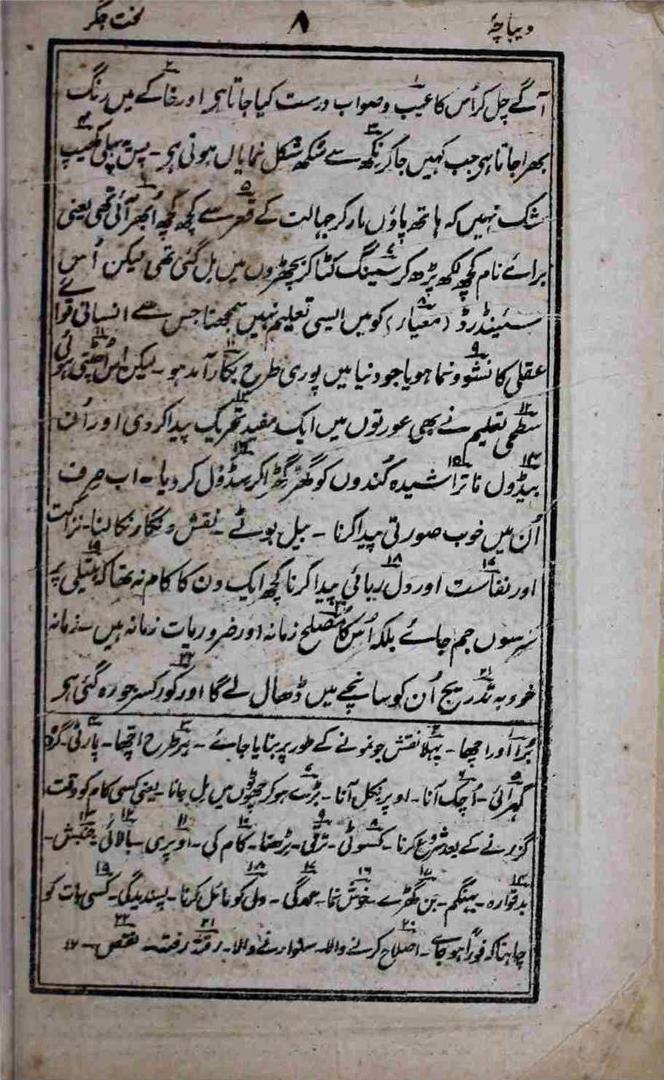 دیباچۂ ۸ لخت جگر
آگے چل کر اُس کا عیب و صواب درست کیا جاتا ہو اور خاکے میں رنگ
بھرا جاتا ہو جب کہیں جا کر نکھ سے سکھ شکل نمایاں ہوتی ہو۔ پس پہلی کھیپ
شک نہیں کہ ہاتھ پاؤں مار کر جہالت کے قعر سے کچھ کچھ اُبھر آئی تھی یعنی
برائے نام کچھ لکھ پڑھ کر سینگ کٹا کر بچھڑوں میں مل گئی تھی لیکن اُس
سٹینڈرڈ (معیار) کو میں ایسی تعلیم نہیں سمجھتا جس سے انسانی قوائے
عقلی کا نشو و نما ہو یا جو دنیا میں پوری طرح بکار آمد ہو۔ لیکن اس اُچٹتی ہوئی
سطحی تعلیم نے بھی عورتوں میں ایک مفید تحریک پیدا کر دی اور اُن
بیڈول ناتراشیدہ کُندوں کو گھڑ گھڑا کر سڈول کر دیا۔ اب صرف
اُن میں خوب صورتی پیدا کرنا۔ بیل بوٹے۔ نقش و نگار نکالنا۔ نزاکت
اور نفاست اور دل ربائی پیدا کرنا کچھ ایک دن کا کام نہ تھا کہ ہتیلی پر
سرسوں جم جائے بلکہ اُس کا مصلح زمانہ اور ضروریات زمانہ ہیں۔ زمانہ
خود بہ تدریج اُن کو سانچے میں ڈھال لے گا اور کور کسر جو رہ گئی ہو
بُرا اور اچھا۔ پہلا نقش جو نمونے کے طور پر بنایا جائے۔ ہر طرح اچھا۔ پارٹی۔ گروہ
گہرائی۔ اُچک آنا۔ اوپر نکل آنا۔ بڑے ہو کر چھوٹوں میں مل جانا۔ یعنی کسی کام کو وقت
گزرنے کے بعد شروع کرنا۔ کسوٹی۔ ترقی۔ بڑھنا۔ کام کی۔ اوپری۔ بالائی۔ جنبش۔
بد قوارہ۔ بینگم۔ بن گھڑے۔ خوش نما۔ عمدگی۔ دل کو مائل کرنا۔ پسندیدگی۔ کسی بات کو
چاہنا کہ فوراً ہو جائے۔ اصلاح کرنے والا۔ سنوارنے والا۔ رفتہ رفتہ۔ نقص۔ ۱۲